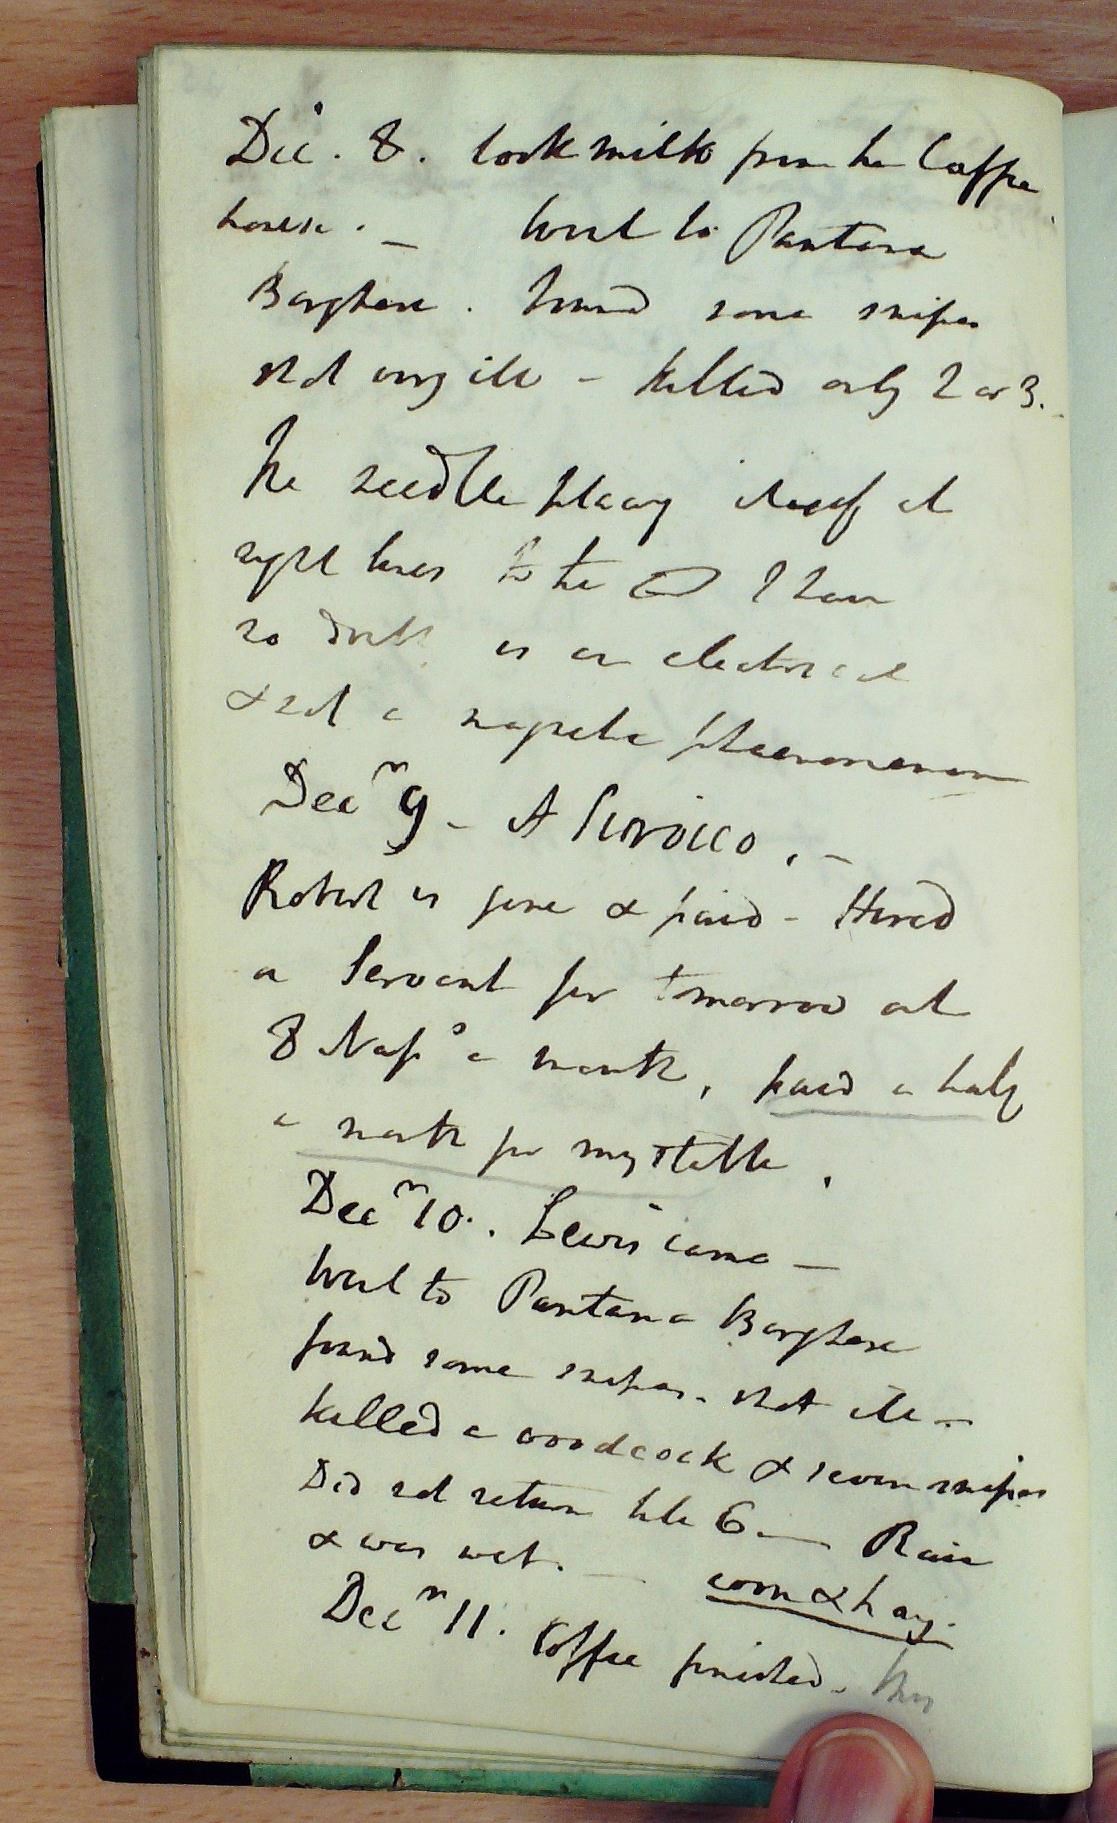 Dec. 8. took milk from the Coffee
house. – Went to Pantana
Borghese. found some snipes
shot very ill – killed only 2 or 3.
The needle placing itself at
right lines to the I have
no doubt is an electrical
& not a magnetic phaenomenon
Decr 9 – A Sirocco. –
Robert is gone & paid – Hired
a Servant for tomorrow at
8 Nap° a month, paid a half
a month for my stable.
Decr 10. Lewis came –
Went to Pantana Borghese
found some snipes. shot ill –
killed a woodcock & seven snipes
Did not return till 6 – Rain
& was wet. – corn & hay.
Decr 11. Coffee finished –